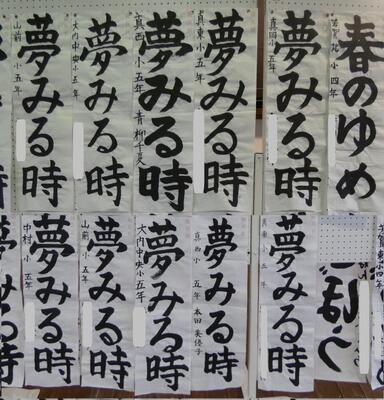 春のゆめ
小四年
夢みる時
真岡小五年
夢みる時
真東小五年
夢みる時
真西小五年 青柳千夏
夢みる時
大内中央小五年
夢みる時
山前小五年
夢みる時
真東小五年
夢みる時
真西小五年 本田美優子
夢みる時
大内中央小五年
夢みる時
山前小五年
夢みる時
中村小五年